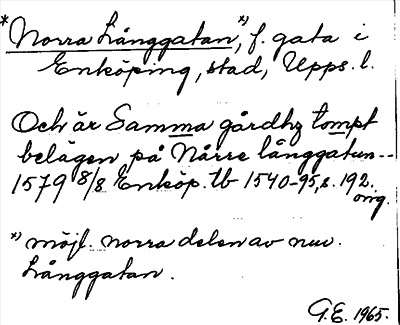 *Norra Långgatan*), f. gata i
Enköping, stad, Upps. l.
Och är Samma gårdhz tompt
belägen på Nårre långgatun--
1579 8/8 Enköp. tb 1540-95, s. 192.
orig.
*) möjl. norra delen av nuv.
Långgatan.
G.E. 1965.